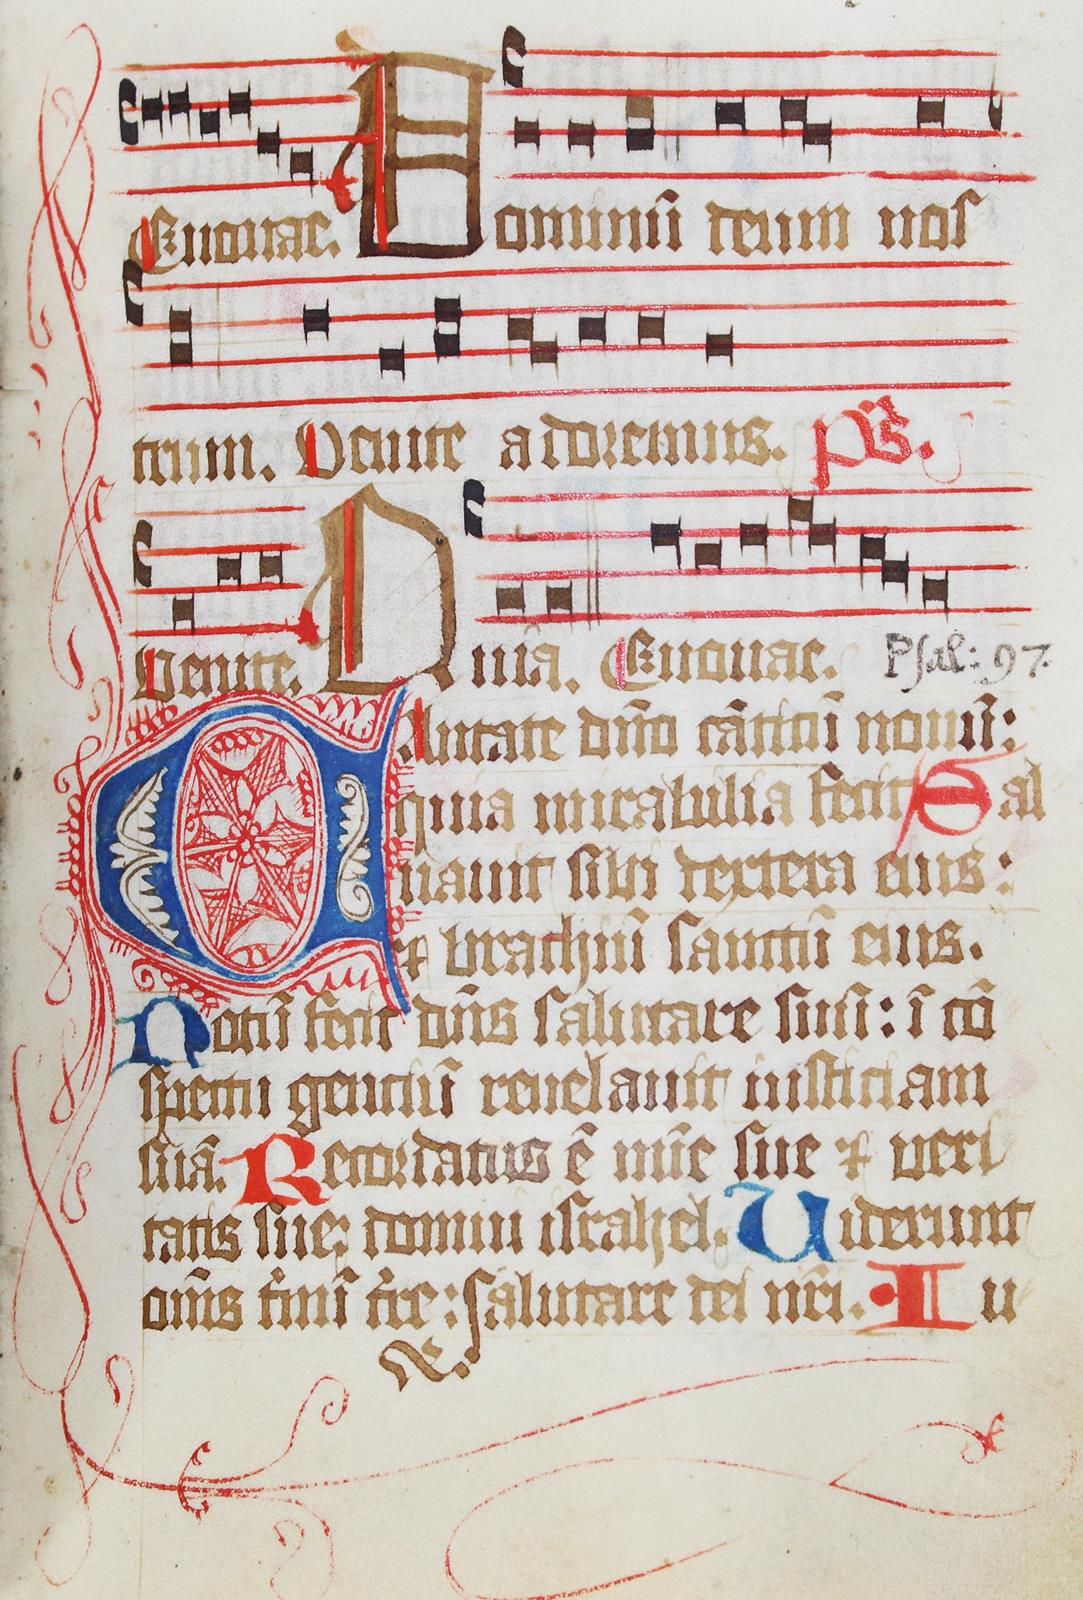 Euouae. Dominū deum nos
trum. Venite adoremus. ps.
Venite. Quia. Euouae. Psal: 97.
Cantate dn̄o cāticū nouū:
quia mirabilia fecit Sal
uauit sibi dextera eius:
⁊ brachiū sanctū eius.
Notū fecit dn̄s salutare suū: ī cō
spectu genciū reuelauit iusticiam
suā. Recordatus ē mīe sue ⁊ veri
tatis sue: domui israhel. Viderunt
om̄s t̄mī t̄re: salutare dei nr̄i. Iu